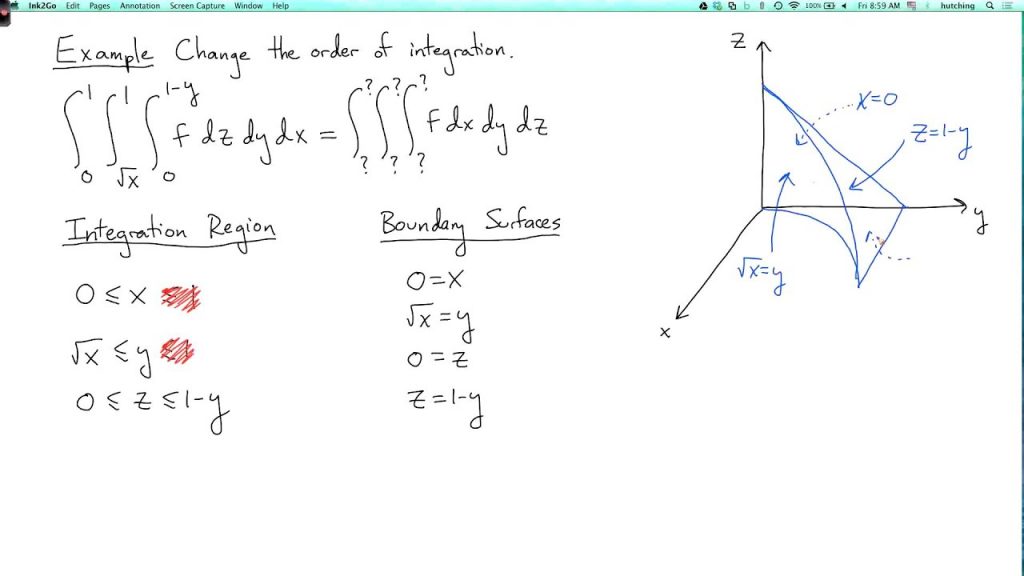 Ink2Go Edit Pages Annotation Screen Capture Window Help 100% Fri 8:59 AM hutching
Example Change the order of integration.
∫₀¹ ∫_√x^1 ∫₀^1-y f dz dy dx = ∫_?^? ∫_?^? ∫_?^? f dx dy dz
Integration Region
0 ≤ x
√x ≤ y
0 ≤ z ≤ 1-y
Boundary Surfaces
0=x
√x = y
0 = z
z = 1-y
z
x=0
z=1-y
y
√x=y
x